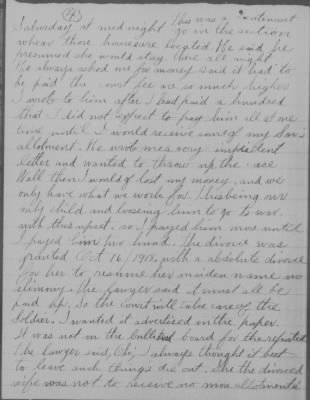 (4)
This was a
Saturday at mid night go in the section
whear those
located. He said he
presumed she would stay there all night
He always asked me for money said it had to
be paid the court fee are so much higher
I wrote to him after I had paid a hundred
that I did not expect to pay him all at one
time until I would receive some of my Son's
allotment. He wrote me a very impudent
letter and wanted to throw up the case
Well then I would of lost my money, and we
only have what we work for. This being our
only child and loosing him to go to war
with this upset. so I payed him more until
I payed him two hund. The divorce was
granted Oct 16/1918, with a absolute divorce
for her to resume her maiden name no
alimony. The lawyer said it must all be
paid up. So the court will take care of the
Soldier. I wanted it advertised in the paper.
It was not on the bulleted board for the
The lawyer said, Oh, I always thought it best
to leave such things die out. She the divorced
wife was not to receive no more allotments